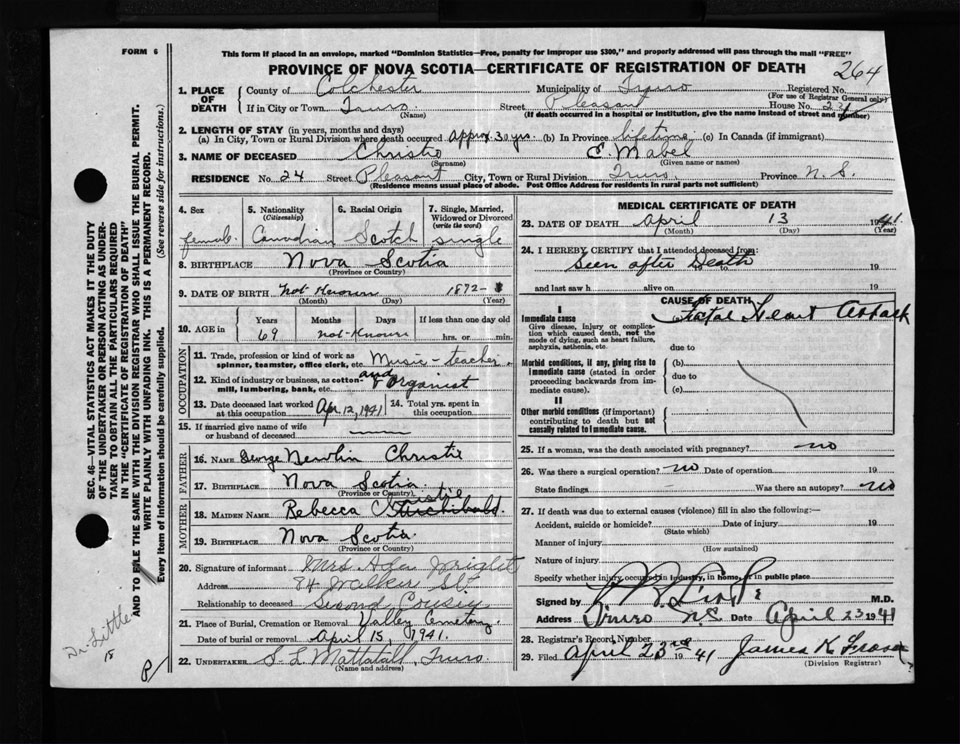 FORM 6
This form if placed in an envelope, marked "Dominion Statistics—Free, penalty for improper use $300," and properly addressed will pass through the mail "FREE"
PROVINCE OF NOVA SCOTIA—CERTIFICATE OF REGISTRATION OF DEATH
264
1. PLACE OF DEATH
County of Colchester Municipality of Truro Registered No.
(For use of Registrar General only)
If in City or Town Truro Street Pleasant House No. 24
(Name) (If death occurred in a hospital or institution, give the name instead of street and number)
2. LENGTH OF STAY (in years, months and days)
(a) In City, Town or Rural Division where death occurred Approx 30 yrs. (b) In Province lifetime (c) In Canada (if immigrant)
3. NAME OF DECEASED Christie E. Mabel
(Surname) (Given name or names)
RESIDENCE No. 24 Street Pleasant City, Town or Rural Division Truro Province N. S.
(Residence means usual place of abode. Post Office Address for residents in rural parts not sufficient)
4. Sex 5. Nationality (Citizenship) 6. Racial Origin 7. Single, Married, Widowed or Divorced (write the word)
female Canadian Scotch single
8. BIRTHPLACE Nova Scotia
(Province or Country)
9. DATE OF BIRTH Not Known 1872
(Month) (Day) (Year)
10. AGE in Years Months Days If less than one day old
69 not-Known hrs. or min.
OCCUPATION
11. Trade, profession or kind of work as spinner, teamster, office clerk, etc. Music-teacher
12. Kind of industry or business, as cotton-mill, lumbering, bank, etc. and Organist
13. Date deceased last worked at this occupation Apr 12, 1941 14. Total yrs. spent in this occupation
15. If married give name of wife or husband of deceased
FATHER
16. NAME George Newlin Christie
17. BIRTHPLACE Nova Scotia
(Province or Country)
MOTHER
18. MAIDEN NAME Rebecca Christie Archibald
19. BIRTHPLACE Nova Scotia
(Province or Country)
20. Signature of informant Mrs Ada Wright
Address 84 Walker St
Relationship to deceased Second Cousin
21. Place of Burial, Cremation or Removal Valley Cemetery
Date of burial or removal April 15, 1941.
22. UNDERTAKER S L Mattatall, Truro
(Name and address)
MEDICAL CERTIFICATE OF DEATH
23. DATE OF DEATH April 13 1941
(Month) (Day) (Year)
24. I HEREBY CERTIFY that I attended deceased from:
Seen after Death to 19
and last saw h alive on 19
CAUSE OF DEATH
Immediate cause Fatal Heart Attack
Give disease, injury or complication which caused death, not the mode of dying, such as heart failure, asphyxia, asthenia, etc.
due to
Morbid conditions, if any, giving rise to immediate cause (stated in order proceeding backwards from immediate cause).
(b)
due to
(c)
II
Other morbid conditions (if important) contributing to death but not causally related to immediate cause.
25. If a woman, was the death associated with pregnancy? no
26. Was there a surgical operation? no Date of operation 19
State findings Was there an autopsy? no
27. If death was due to external causes (violence) fill in also the following:—
Accident, suicide or homicide? Date of injury 19
(State which)
Manner of injury
(How sustained)
Nature of injury
Specify whether injury occurred in industry, in home, or in public place
Signed by M.D.
Address Truro N.S. Date April 23 1941
28. Registrar's Record Number
29. Filed April 23rd 1941 James K Fraser
(Division Registrar)
SEC. 46—VITAL STATISTICS ACT MAKES IT THE DUTY
OF THE UNDERTAKER OR PERSON ACTING AS UNDER-
TAKER TO OBTAIN ALL THE PARTICULARS REQUIRED
IN THE "CERTIFICATE OF REGISTRATION OF DEATH"
AND TO FILE THE SAME WITH THE DIVISION REGISTRAR WHO SHALL ISSUE THE BURIAL PERMIT.
WRITE PLAINLY WITH UNFADING INK. THIS IS A PERMANENT RECORD.
Every item of information should be carefully supplied. (See reverse side for instructions.)
Dr. Little
15